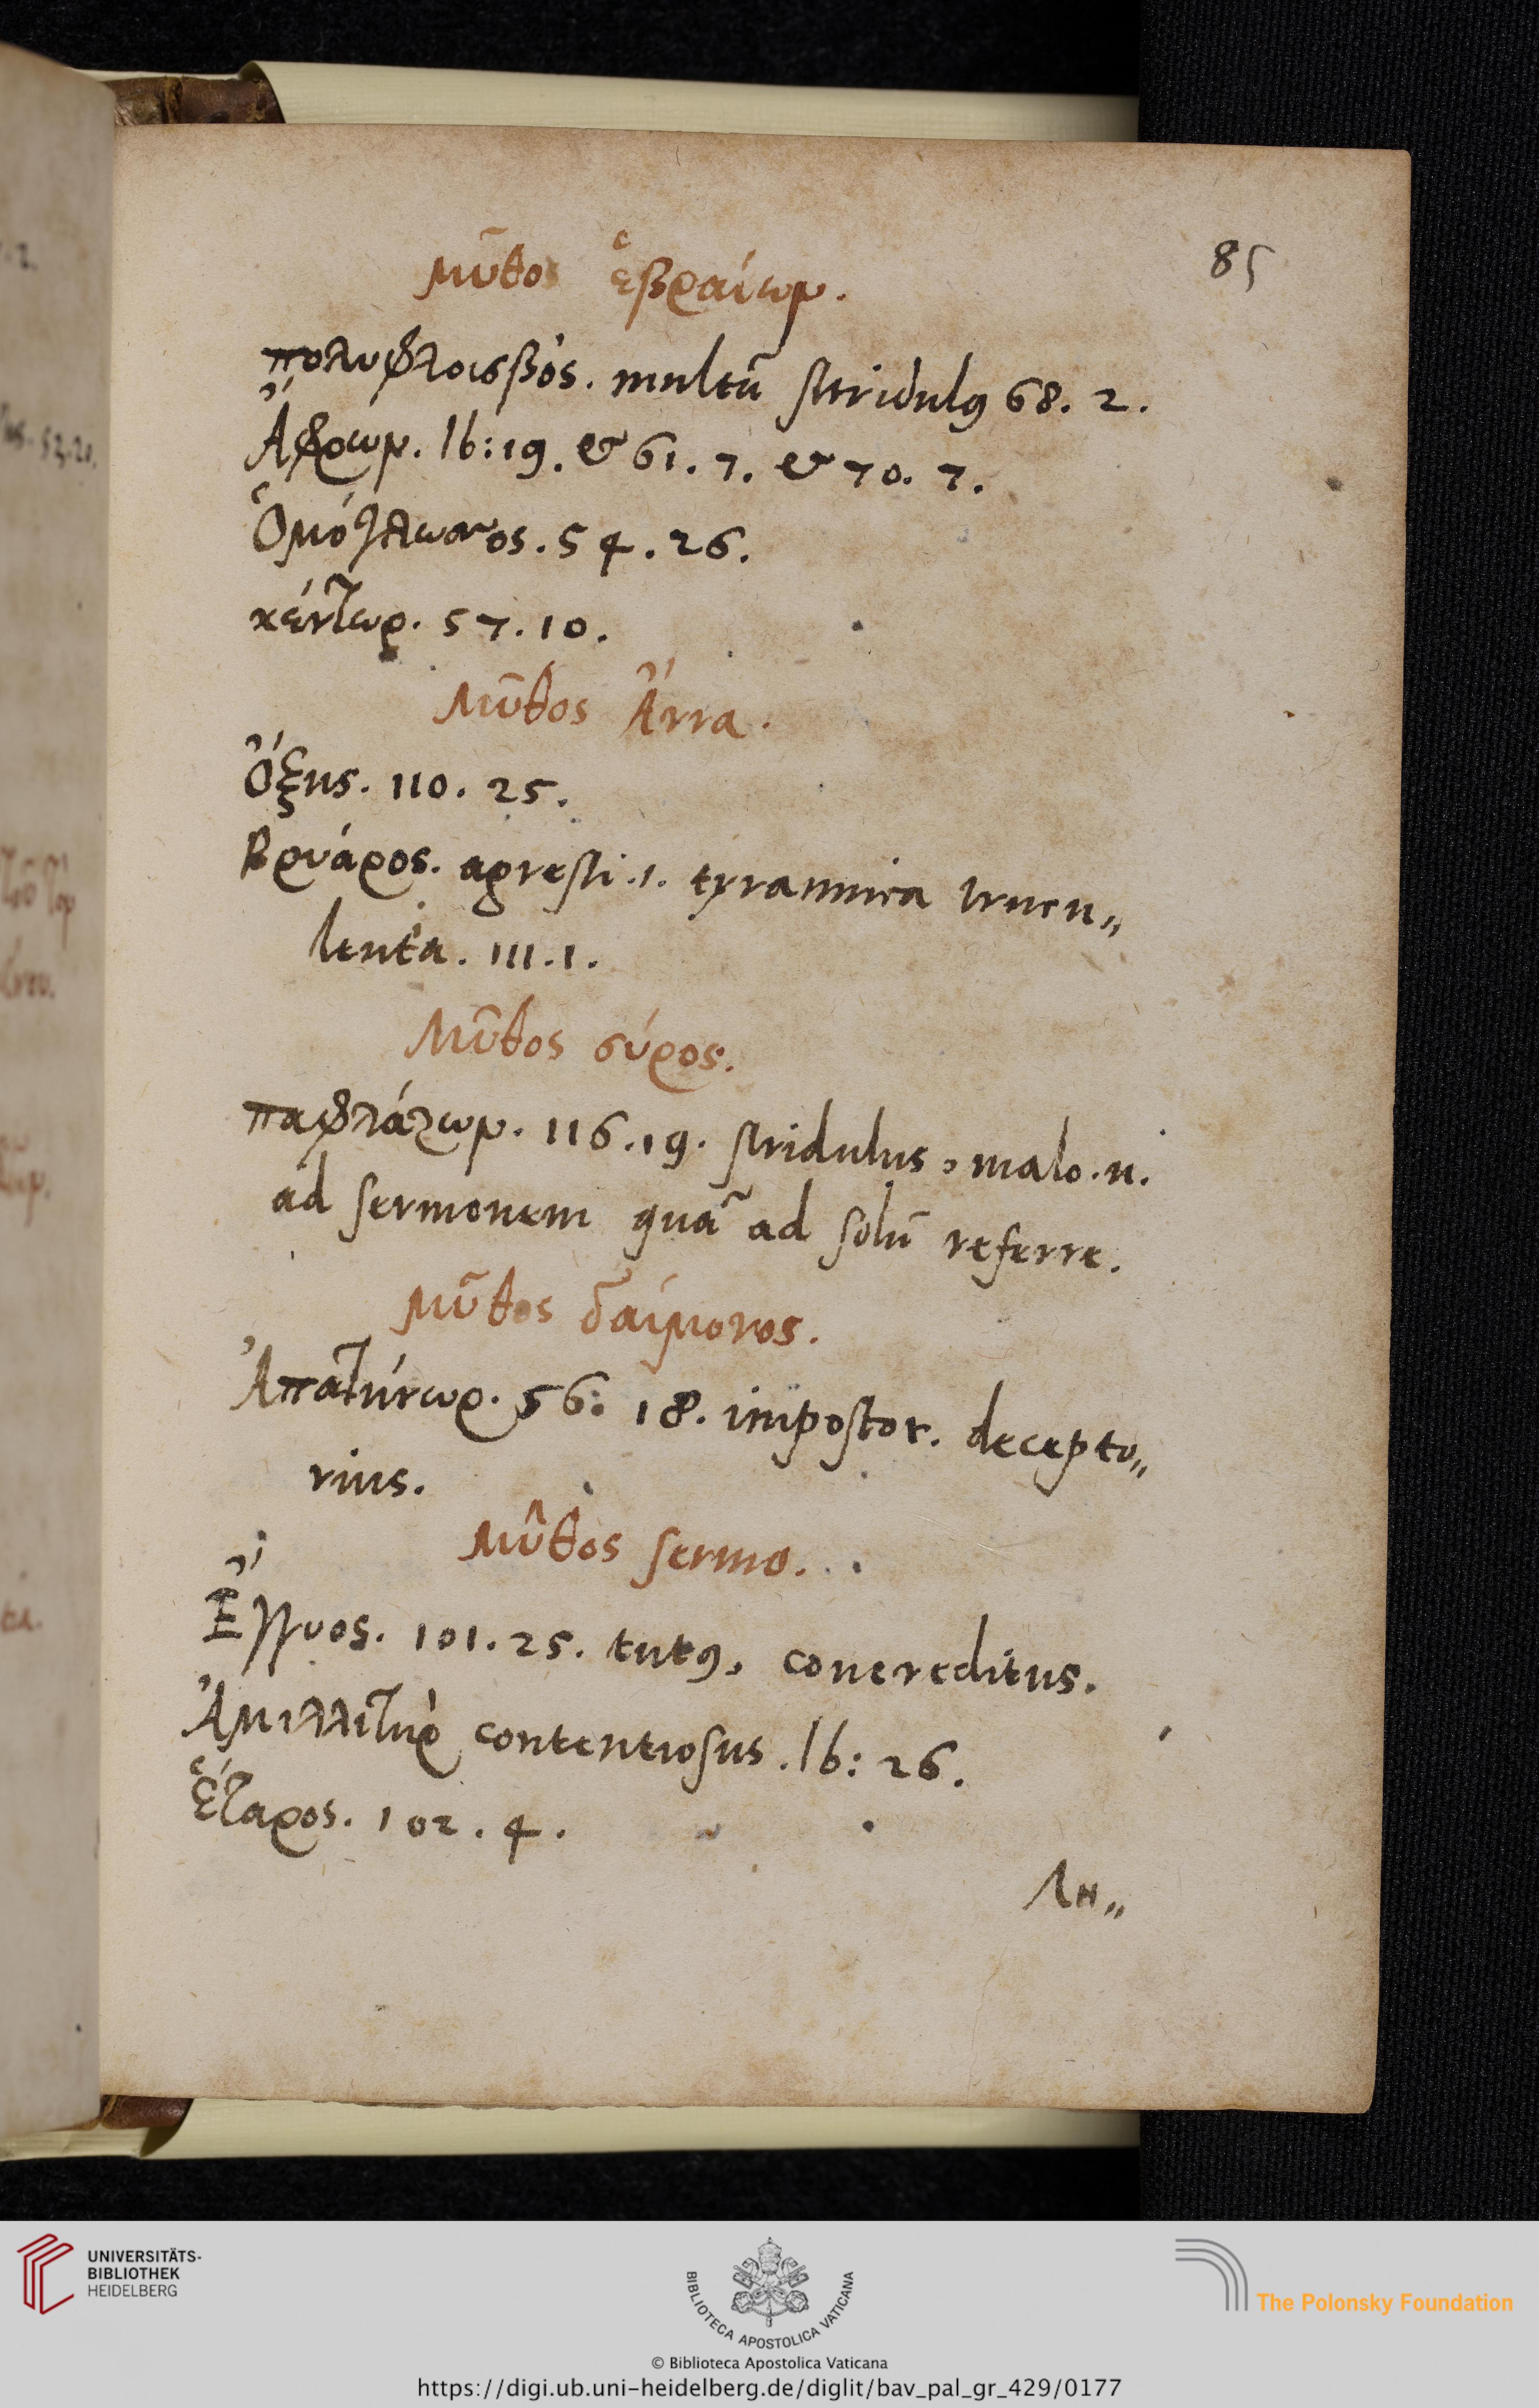 85
μῦθος ἑβραίων.
πολυφλοισβὸς. multũ stridulꝯ 68. 2.
Ἄφρων. Ib: 19. & 61. 7. & 70. 7.
Ὁμόγλωσσος. 54. 26.
κέντωρ. 57. 10.
Μῦθος Ἄννα.
Ὄξυς. 110. 25.
Βρυάρος. agresti .i. tyrannica trucu„
lenta. 111. 1.
Μῦθος σύρος.
παφλάζων. 116. 19. stridulus, malo .n.
ad sermonem quã ad solũ referre.
Μῦθος δαίμονος.
Ἀπατήνωρ. 56: 18. impostor. decepto„
rius.
Μῦθος sermo.
Ἔγγυος. 101. 25. tutꝯ, concreditus.
Ἀμιλλιτὴρ contentiosus. Ib: 26.
Ἕταρος. 102. 4.
Λη„
UNIVERSITÄTS-
BIBLIOTHEK
HEIDELBERG
BIBLIOTECA APOSTOLICA VATICANA
The Polonsky Foundation
© Biblioteca Apostolica Vaticana
https://digi.ub.uni-heidelberg.de/diglit/bav_pal_gr_429/0177